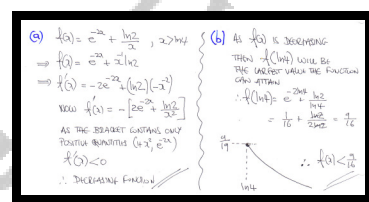 (a) f(x) = e^{-2x} + ln2/x , x > ln4
⇒ f(x) = e^{-2x} + x^{-1} ln2
⇒ f'(x) = -2e^{-2x} + (ln2)(-x^{-2})
NOW f'(x) = -[2e^{-2x} + ln2/x^2]
AS THE BRACKET CONTAINS ONLY
POSITIVE QUANTITIES (+x^2, e^{-2x})
f'(x) < 0
∴ DECREASING FUNCTION
(b) AS f(x) IS DECREASING
THEN f(ln4) WILL BE
THE LARGEST VALUE THE FUNCTION
CAN ATTAIN
∴ f(ln4) = e^{-2ln4} + ln2/ln4
= 1/16 + ln2/2ln2 = 9/16
ln4
∴ f(x) < 9/16